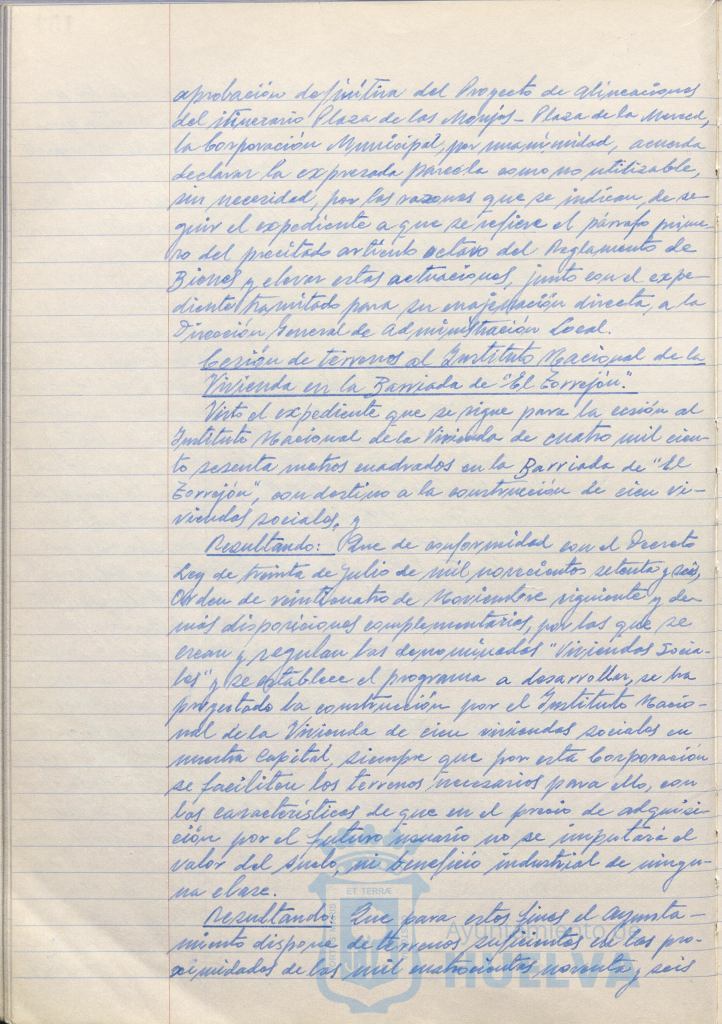 aprobación definitiva del Proyecto de alineaciones
del itinerario Plaza de las Monjas - Plaza de la Merced,
la Corporación Municipal, por unanimidad, acuerda
declarar la expresada parcela como no utilizable,
sin necesidad, por las razones que se indican, de se-
guir el expediente a que se refiere el párrafo prime-
ro del precitado artículo octavo del Reglamento de
Bienes y elevar estas actuaciones, junto con el expe-
diente tramitado para su enajenación directa, a la
Dirección General de Administración Local.
Cesión de terrenos al Instituto Nacional de la
Vivienda en la Barriada de "El Torrejón".
Visto el expediente que se sigue para la cesión al
Instituto Nacional de la Vivienda de cuatro mil cien-
to sesenta metros cuadrados en la Barriada de "El
Torrejón", con destino a la construcción de cien vi-
viendas sociales, y
Resultando: Que de conformidad con el Decreto
Ley de treinta de Julio de mil novecientos setenta y seis,
Orden de veinticuatro de Noviembre siguiente y de-
más disposiciones complementarias, por las que se
crean y regulan las denominadas "Viviendas Socia-
les" y se establece el programa a desarrollar, se ha
proyectado la construcción por el Instituto Nacio-
nal de la Vivienda de cien viviendas sociales en
nuestra Capital, siempre que por esta Corporación
se faciliten los terrenos necesarios para ello, con
las características de que en el precio de adquisi-
ción por el futuro usuario no se imputará el
valor del suelo, ni beneficio industrial de ningu-
na clase.
Resultando: Que para estos fines el Ayunta-
miento dispone de terrenos suficientes en las pro-
ximidades de las mil cuatrocientas noventa y seis
ET TERRÆ
Ayuntamiento de
HUELVA